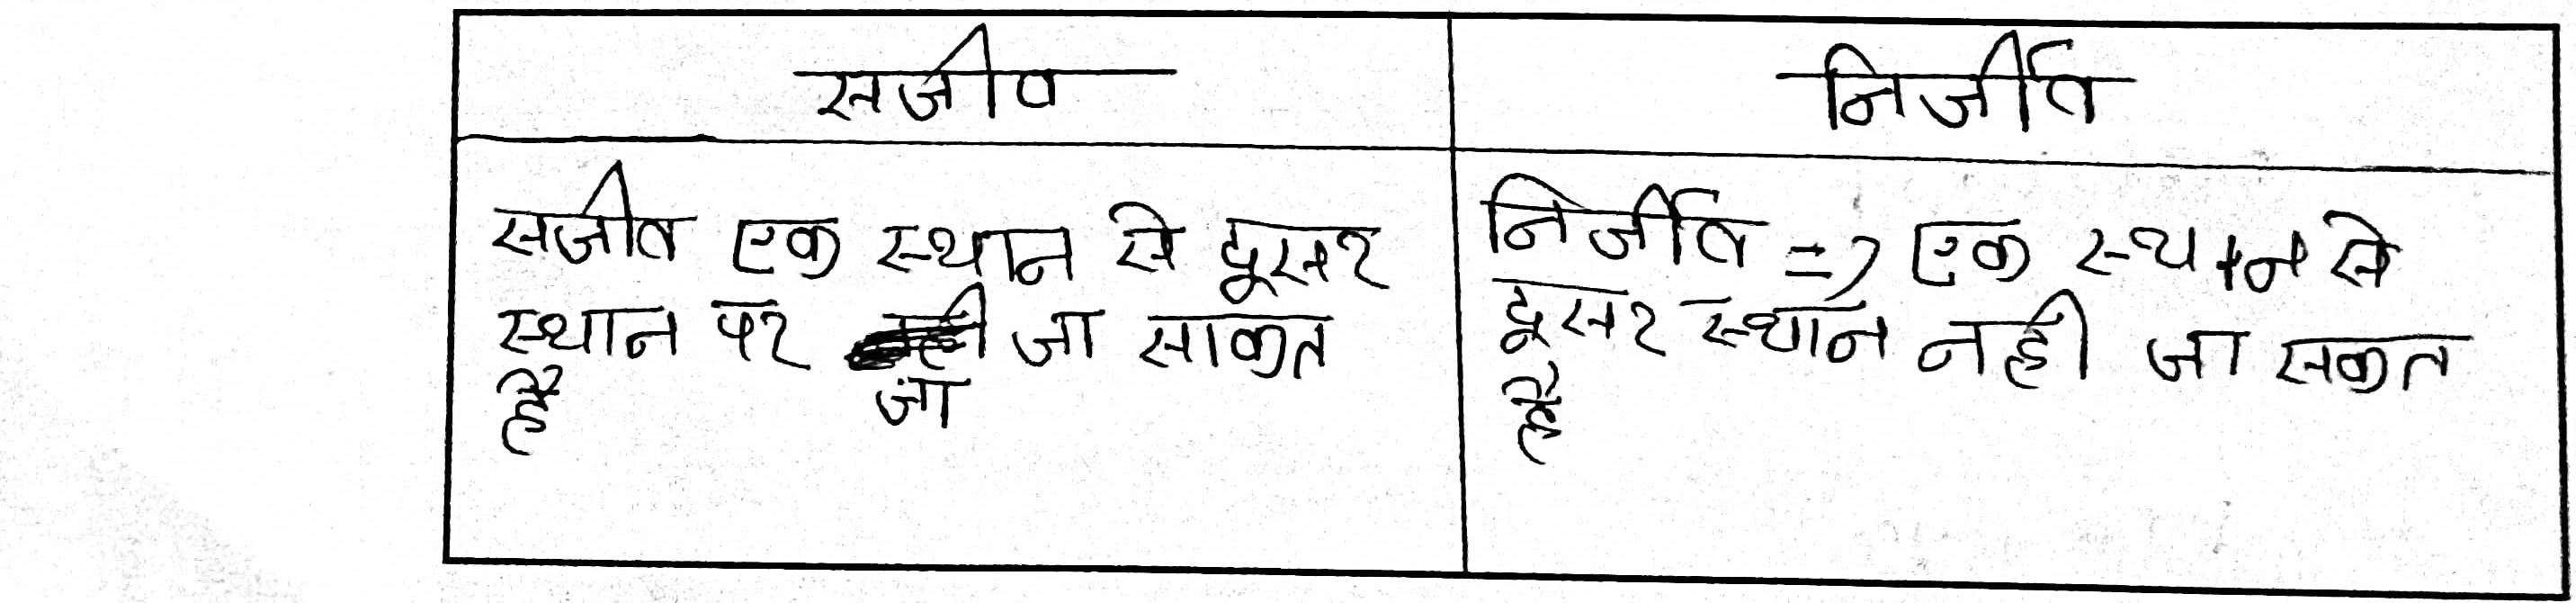 सजीव
निर्जीव
सजीव एक स्थान से दूसर
स्थान पर जा साकत
है जा
निर्जीव => एक स्थान से
दूसर स्थान नही जा सकत
है